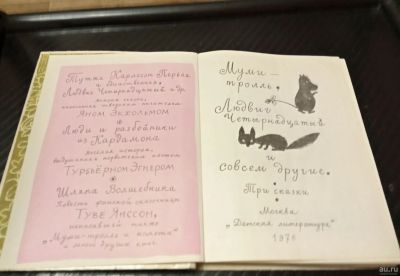 Тутта Карлссон Первая
и единственная,
Людвиг Четырнадцатый и др.
веселая сказка,
написанная шведским писателем
ЯНОМ ЭКХОЛЬМОМ
Люди и разбойники
из Кардамона
веселая история,
выдуманная норвежским поэтом
ТУРБЬЁРНОМ ЭГНЕРОМ
Шляпа Волшебника
повесть финской сказочницы
ТУВЕ ЯНССОН,
написавшей также
„Муми-тролль и комета“
и много других книг
Муми-
тролль,
Людвиг
Четырнадцатый
и
совсем другие.
Три сказки
Москва
„Детская литература“
1976
au.ru